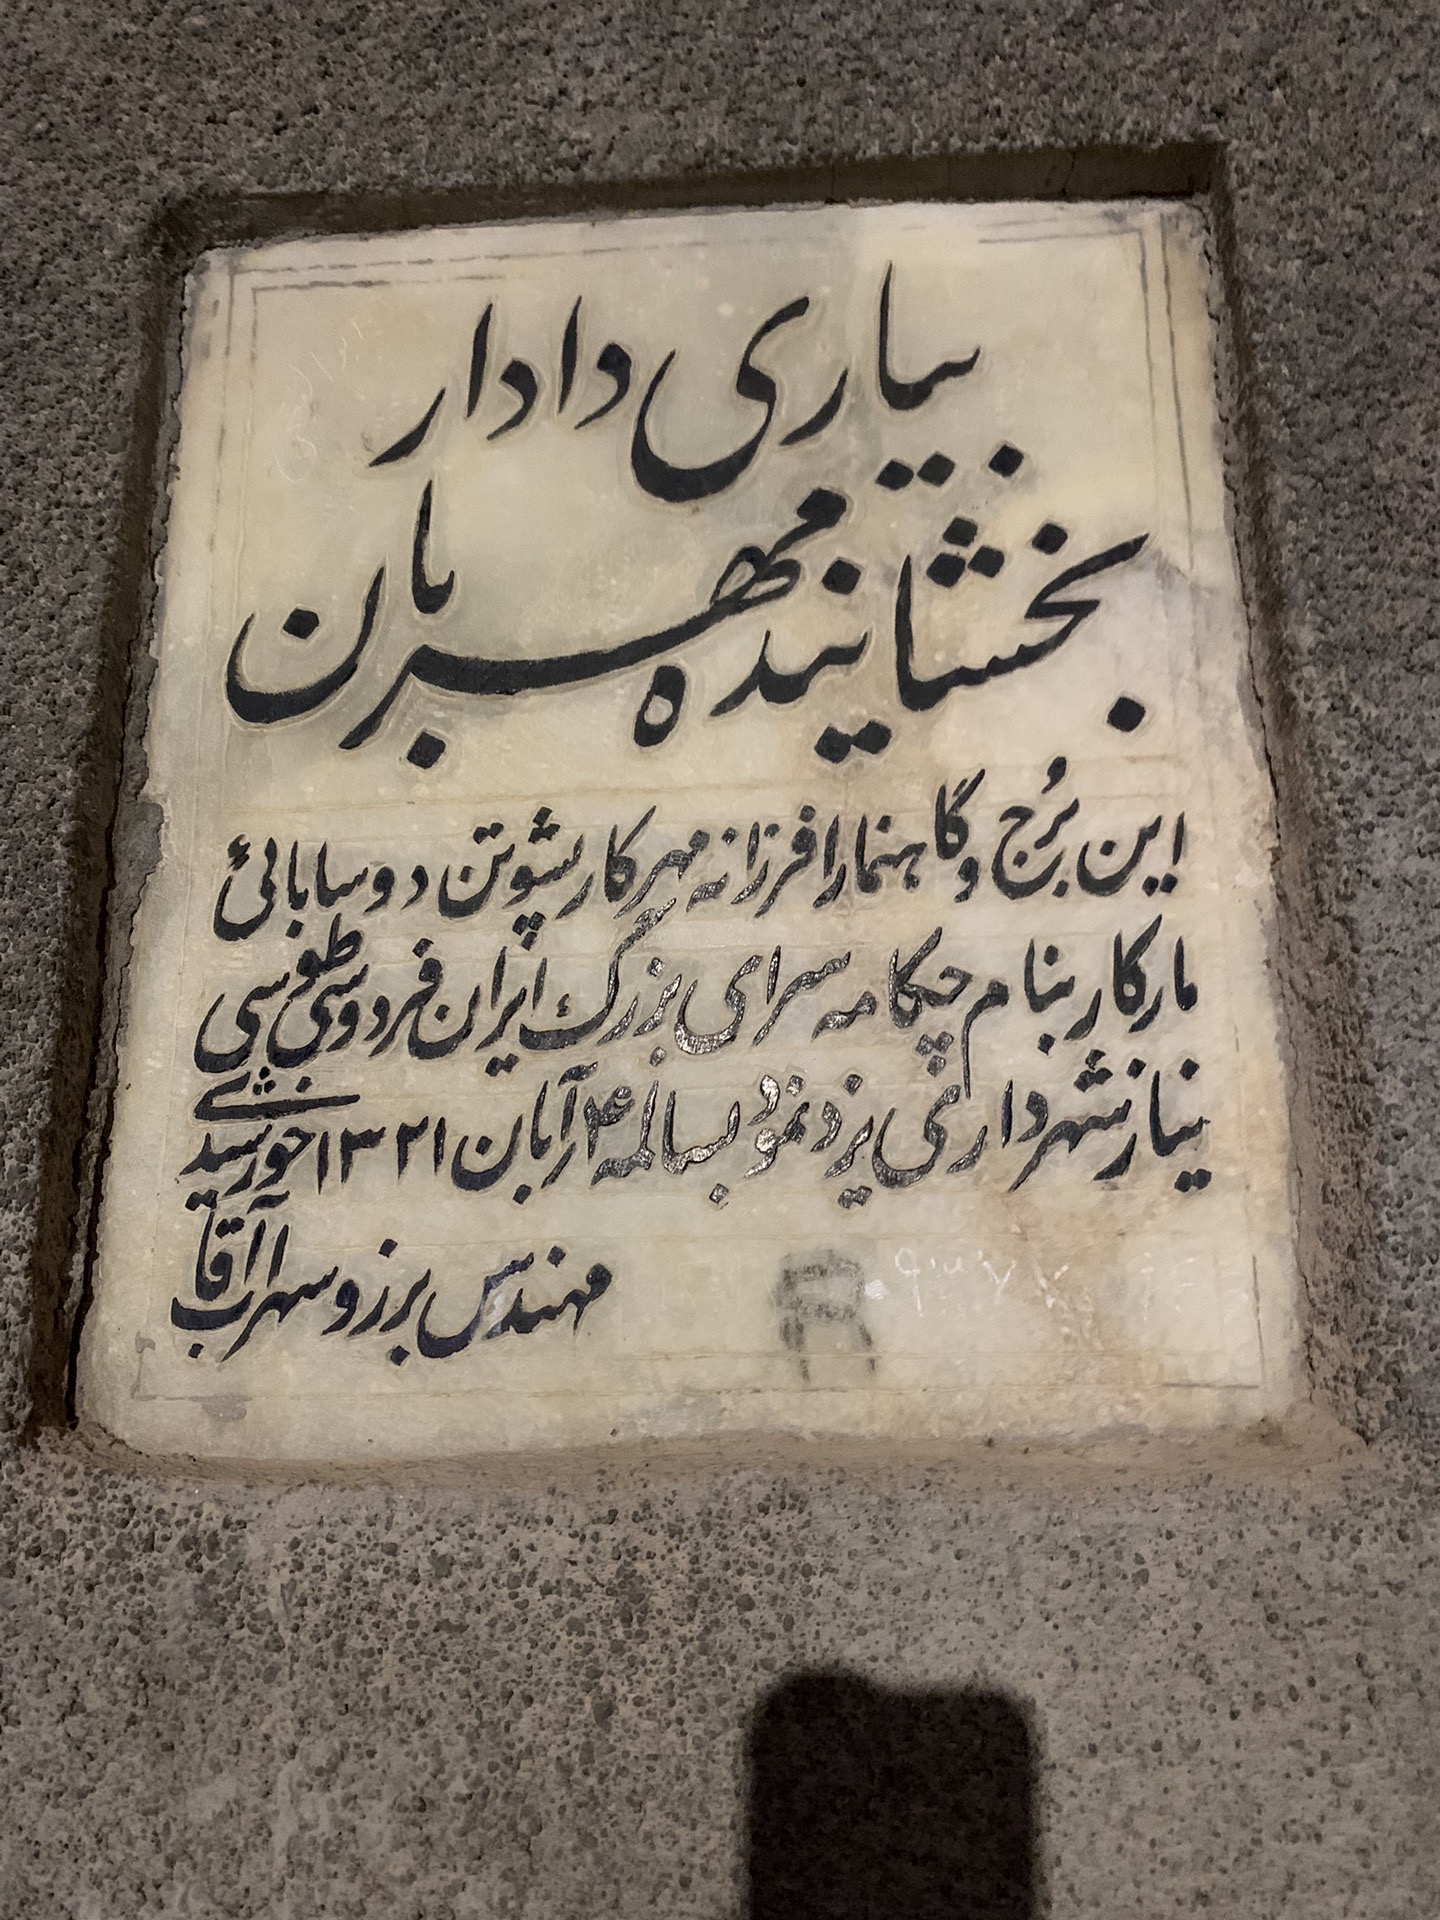 بیاری دادار
بخشاینده مهربان
این بُرج و گاهنما را فرزانه مهرکار پشوتن دوسابائی
مارکار بنام چکامه سرای بزرگ ایران فردوسی طوسی
نیاز شهرداری یزد نمود بسالمه ۴ آبان ۱۳۲۱ خورشیدی
مهندس برزو سهراب آقا